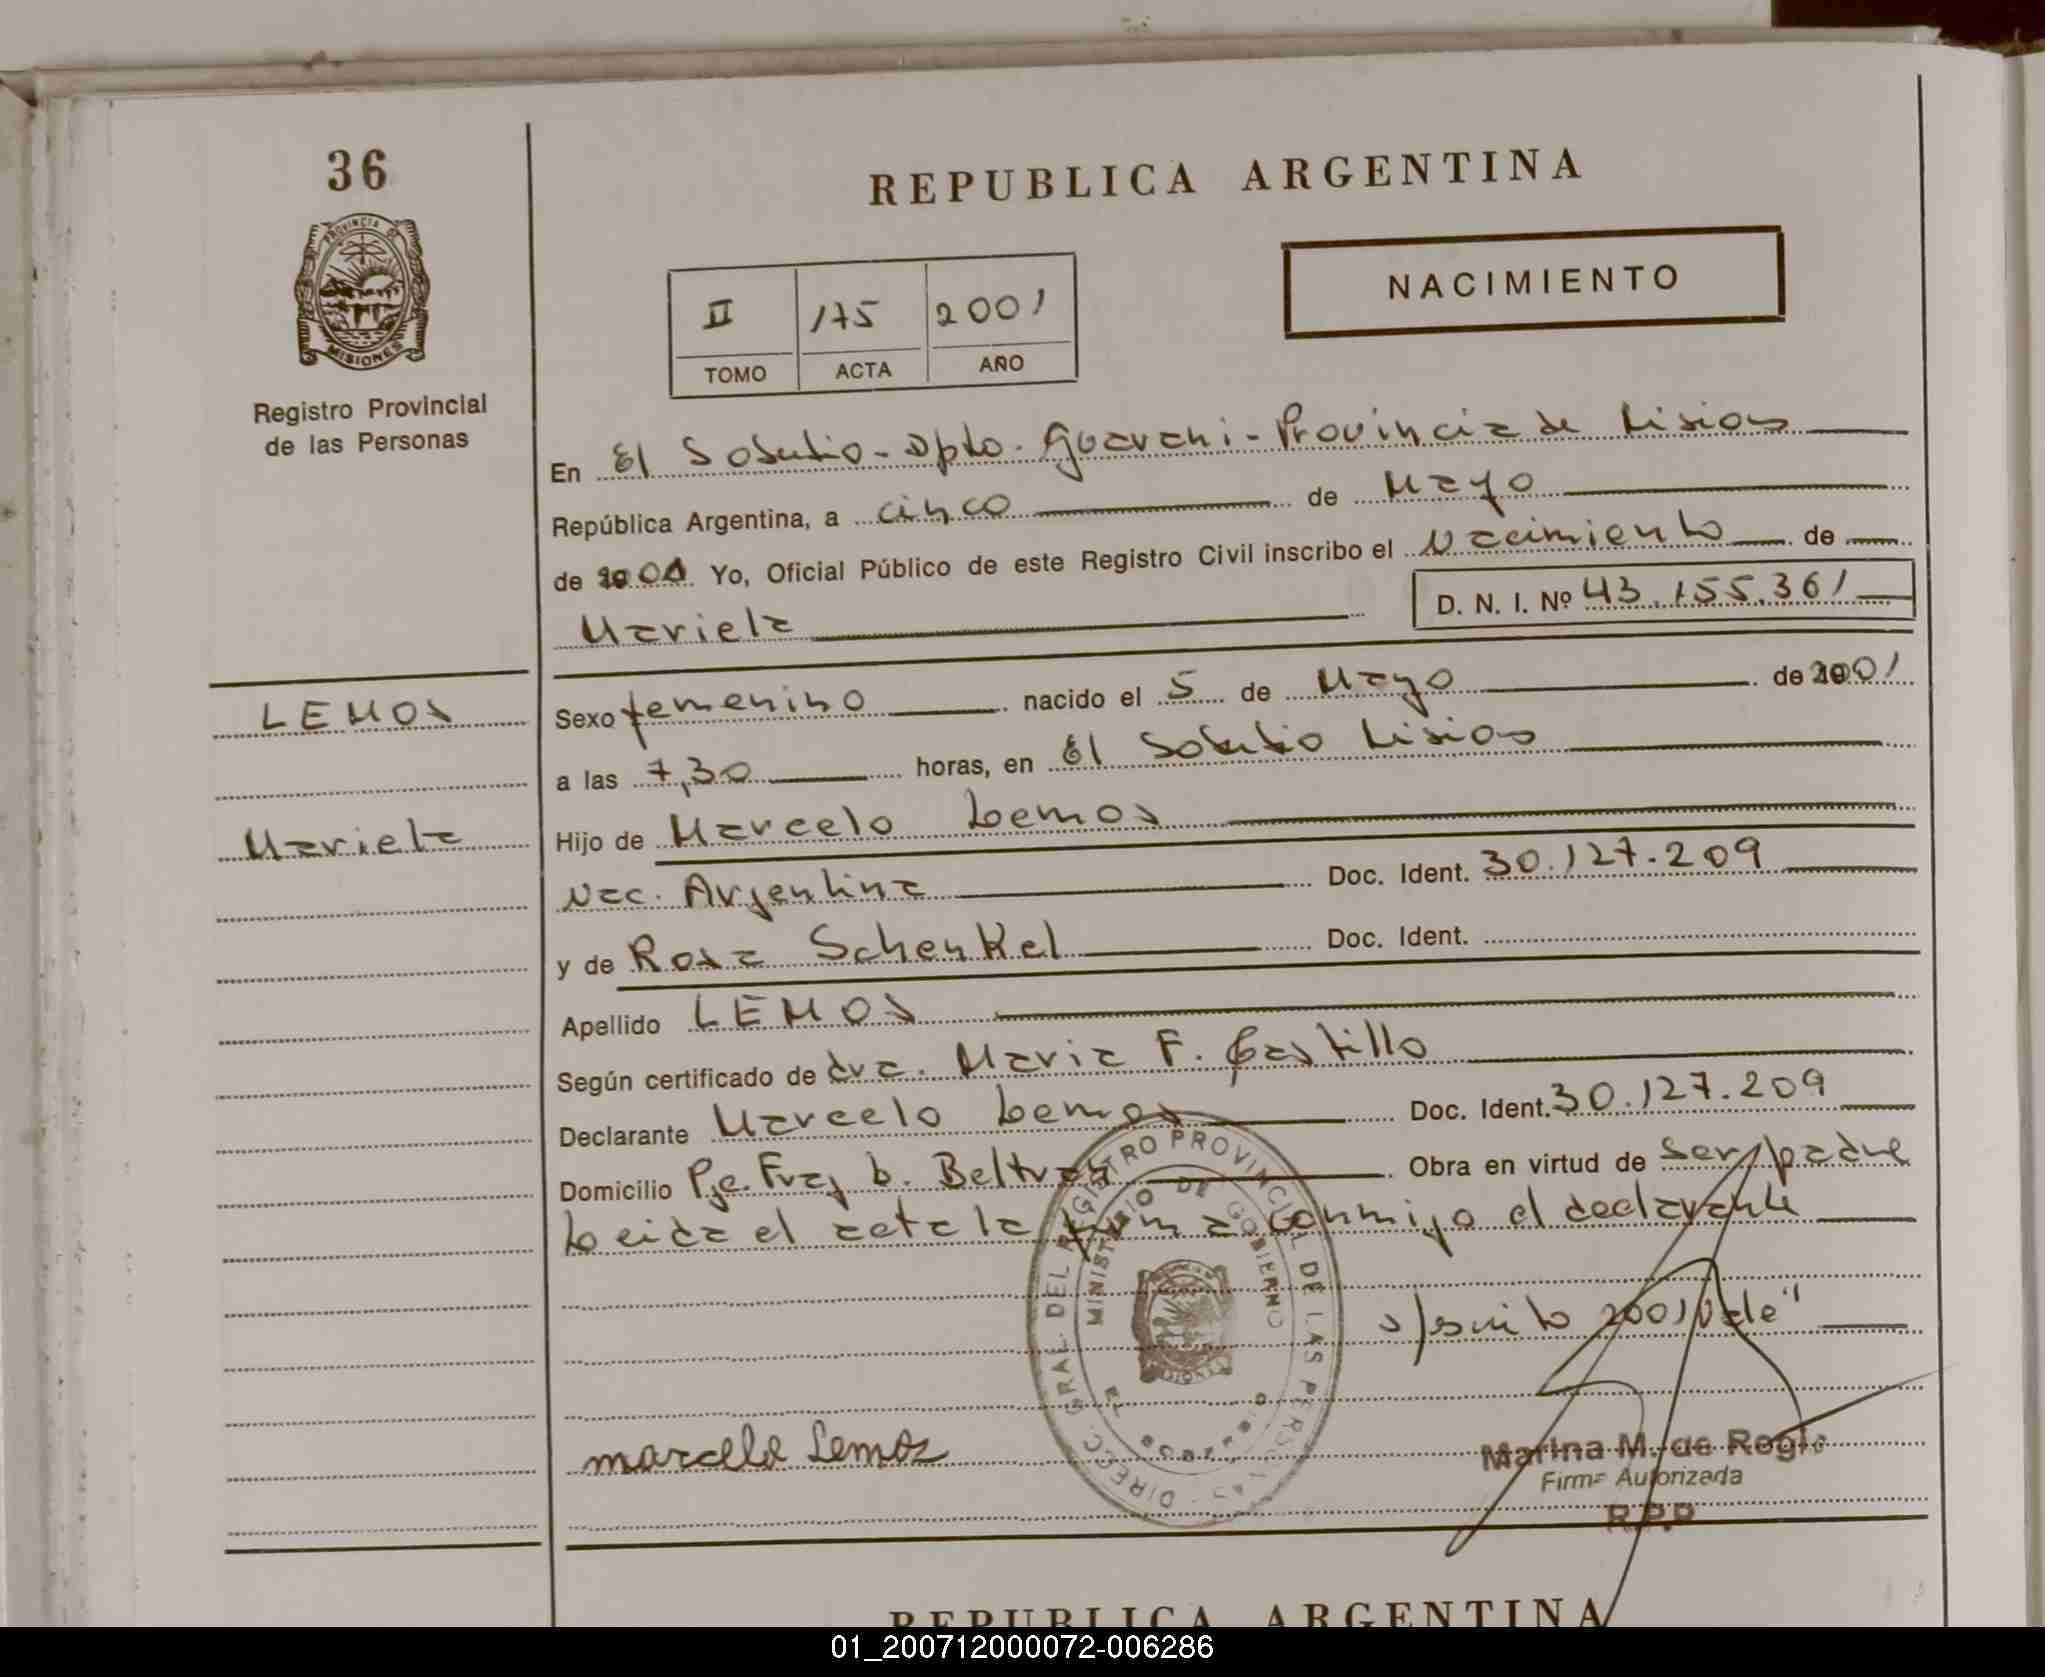 36
PROVINCIA DE
MISIONES
Registro Provincial
de las Personas
REPUBLICA ARGENTINA
II 175 2001
TOMO ACTA AÑO
NACIMIENTO
En El Soberbio - Dpto. Guarani - Provincia de Misiones
República Argentina, a cinco de Mayo
de 2001 Yo, Oficial Público de este Registro Civil inscribo el Nacimiento de
Mariela D. N. I. Nº 43.155.361
LEMOS
Mariela
Sexo femenino nacido el 5 de Mayo de 2001
a las 7,30 horas, en El Soberbio Misiones
Hijo de Marcelo Lemos
Nac. Argentina Doc. Ident. 30.127.209
y de Rosa Schenkel Doc. Ident.
Apellido LEMOS
Según certificado de dra. Maria F. Castillo
Declarante Marcelo Lemos Doc. Ident. 30.127.209
Domicilio Pje. Fray L. Beltran Obra en virtud de ser padre
Leida el acta la firma conmigo el declarante
s/escrito 2001 Vale"
DIRECC. GRAL DEL REGISTRO PROVINCIAL DE LAS PERSONAS
MINISTERIO DE GOBIERNO
MISIONES
EL SOBERBIO
marcelo Lemos
Marina M. de Regis
Firma Autorizada
R.P.P
REPUBLICA ARGENTINA
01_200712000072-006286